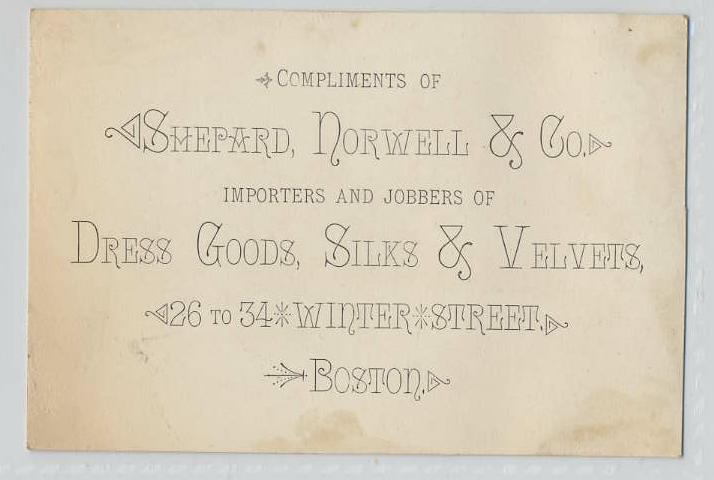 COMPLIMENTS OF
SHEPARD, NORWELL & CO.
IMPORTERS AND JOBBERS OF
DRESS GOODS, SILKS & VELVETS,
26 TO 34 * WINTER * STREET.
BOSTON.